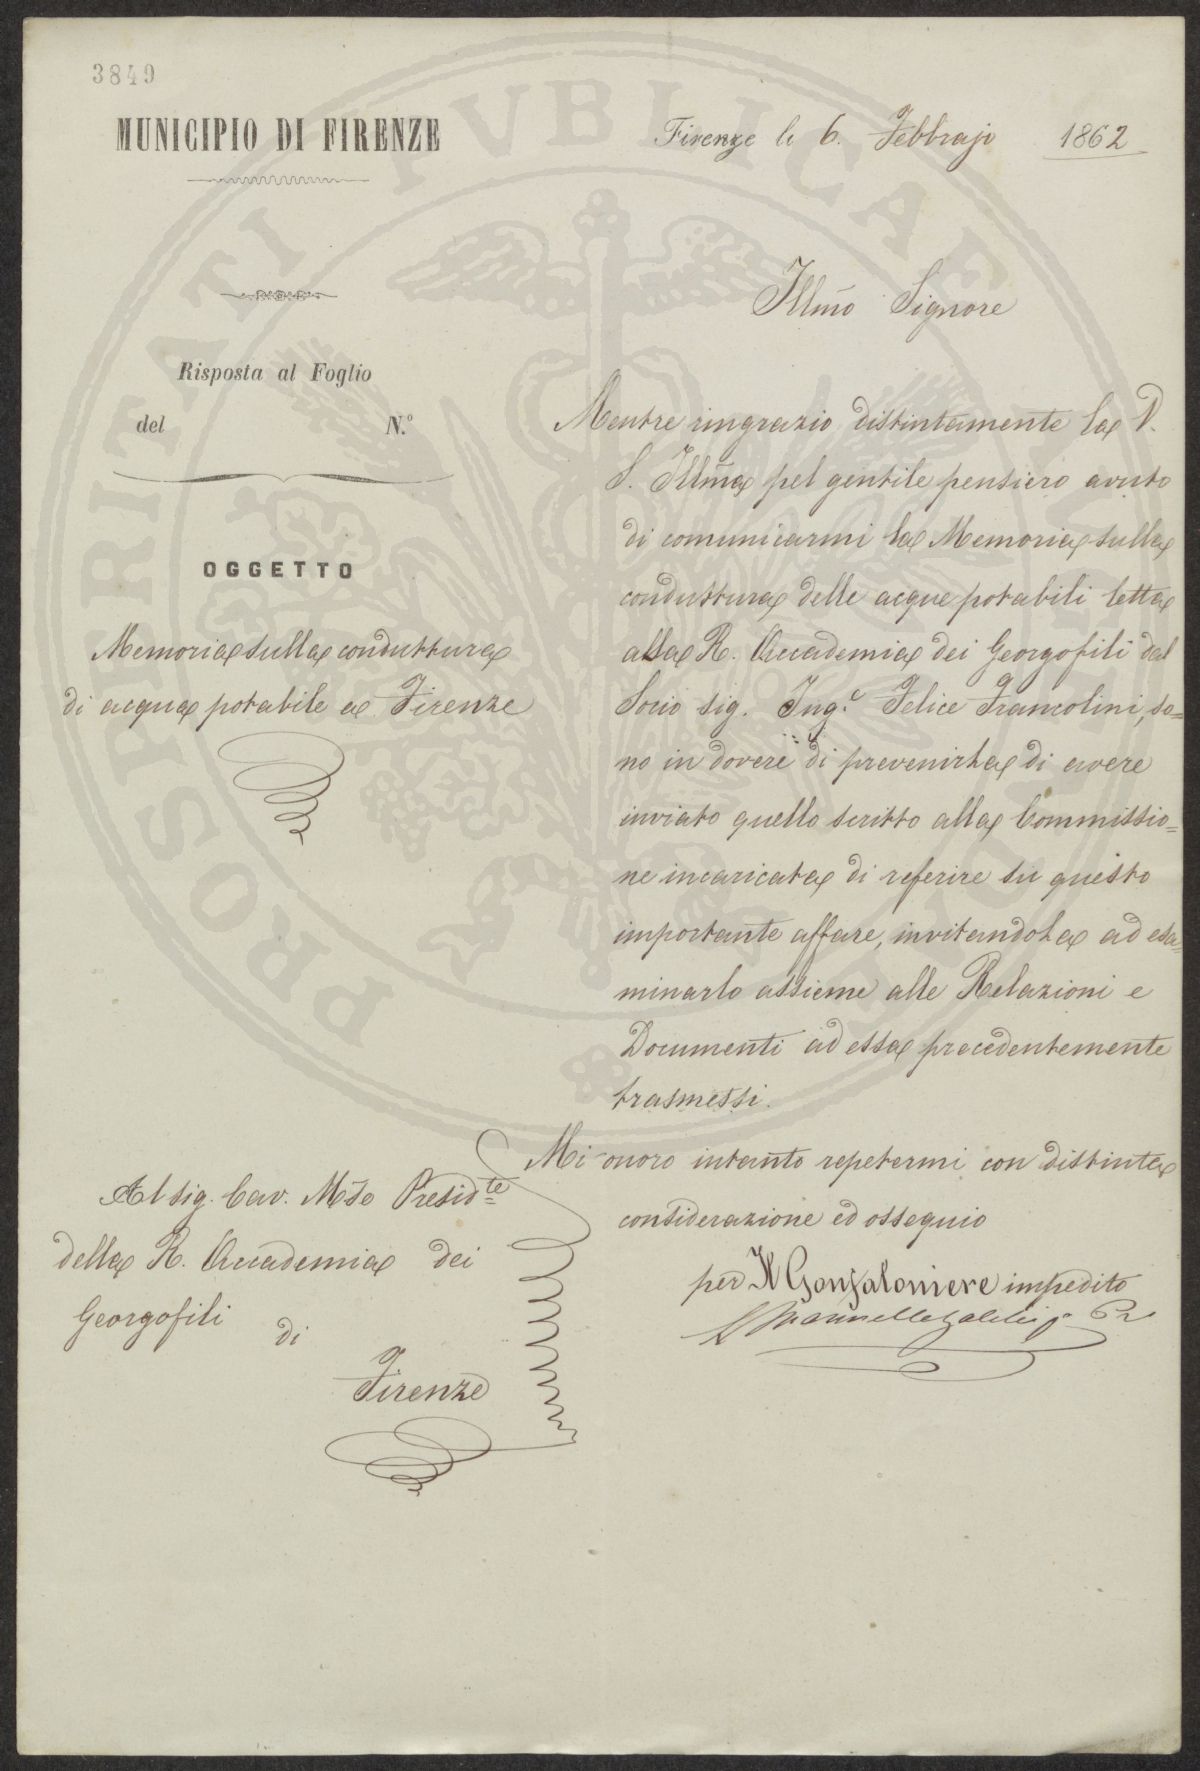 3849
MUNICIPIO DI FIRENZE
Firenze li 6. Febbrajo 1862
Risposta al Foglio
del N.º
OGGETTO
Memoria sulla conduttura
di acqua potabile a Firenze
Illmo Signore
Mentre ringrazio distintamente la V.
S. Illma pel gentile pensiero avuto
di comunicarmi la Memoria sulla
conduttura delle acque potabili letta
alla R. Accademia dei Georgofili dal
Socio sig. Ing.e Felice Francolini, so=
no in dovere di prevenirla di avere
inviato quello scritto alla Commissio=
ne incaricata di referire su questo
importante affare, invitandola ad esa=
minarlo assieme alle Relazioni e
Documenti ad essa precedentemente
trasmessi.
Mi onoro intanto repetermi con distinta
considerazione ed ossequio
per Il Gonfaloniere impedito
Al sig. Cav. Mse Presidte
della R. Accademia dei
Georgofili
di
Firenze
PROSPERITATI PVBLICAE